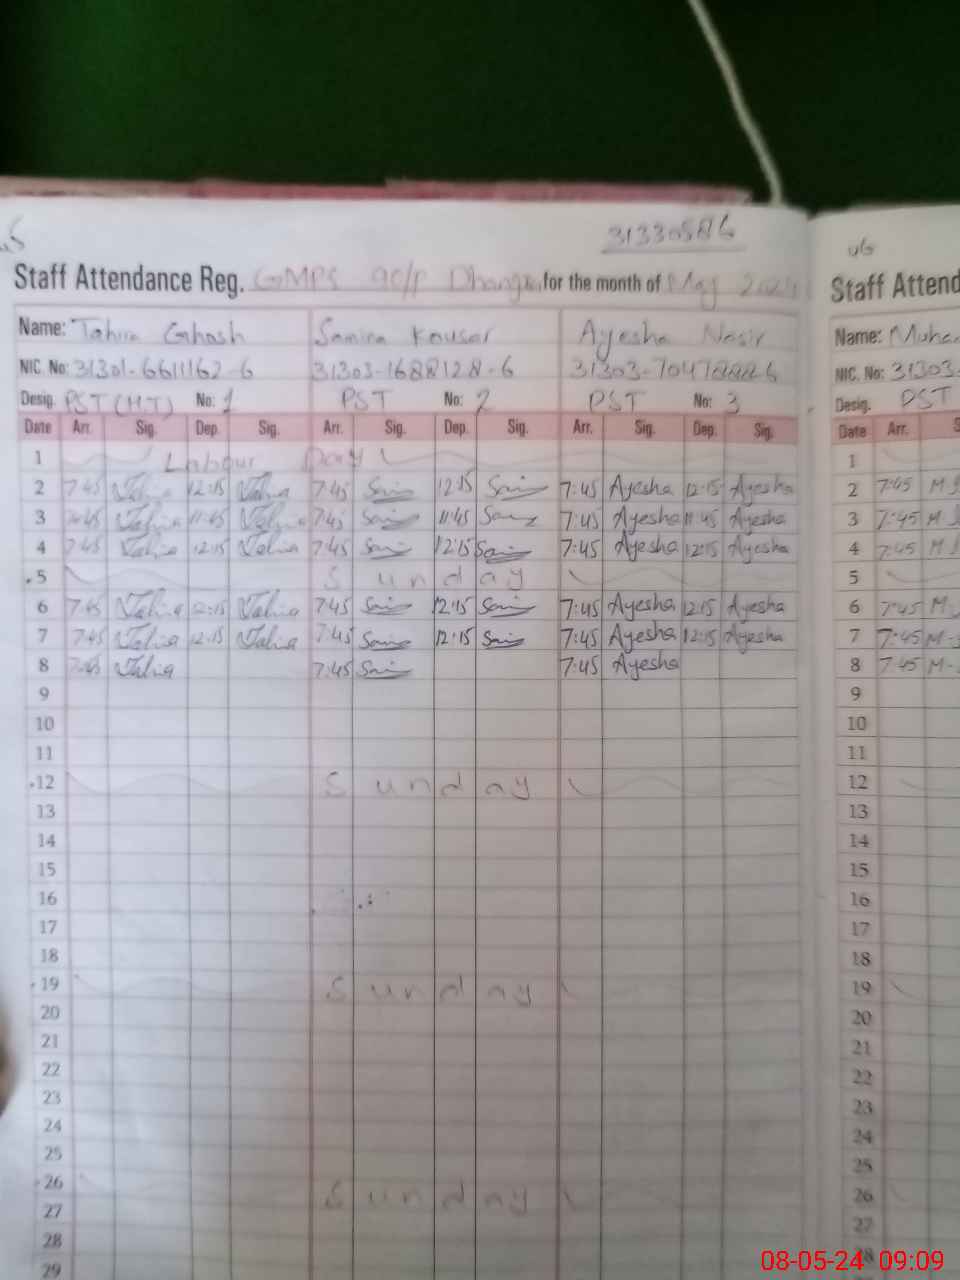 31330586
Staff Attendance Reg. GMPS 90/P for the month of May 2024
Name: Tahira Ghosh Samina Kousar Ayesha Nasir
NIC. No: 31301-6611162-6 31303-1688128-6 31303-
Desig. PST (H.T) No: 1 PST No: 2 PST No: 3
Date Arr. Sig. Dep. Sig. Arr. Sig. Dep. Sig. Arr. Sig. Dep. Sig.
1 Labour Day
2 7:45 Tahira 12:15 Tahira 7:45 12:15 7:45 Ayesha 12:15 Ayesha
3 7:45 Tahira 11:45 Tahira 7:45 11:45 7:45 Ayesha 11:45 Ayesha
4 7:45 Tahira 12:15 Tahira 7:45 12:15 7:45 Ayesha 12:15 Ayesha
5 Sunday
6 7:45 Tahira 12:15 Tahira 7:45 12:15 7:45 Ayesha 12:15 Ayesha
7 7:45 Tahira 12:15 Tahira 7:45 12:15 7:45 Ayesha 12:15 Ayesha
8 7:45 Tahira 7:45 7:45 Ayesha
9
10
11
12 Sunday
13
14
15
16
17
18
19 Sunday
20
21
22
23
24
25
26 Sunday
27
28
29
06
Staff Attend
Name:
NIC. No: 31303-
Desig. PST
Date Arr. S
1
2 7:45 M
3 7:45 M
4 7:45 M
5
6 7:45 M
7 7:45 M
8 7:45 M
9
10
11
12
13
14
15
16
17
18
19
20
21
22
23
24
25
26
27
28
08-05-24 09:09